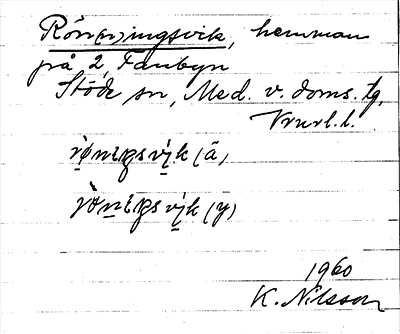 Rön(n)ingsvik, hemman
på 2, Fanbyn
Stöde sn, Med. v. doms. tg,
Vnrl. l.
rø̀nıŋsvı́k (ä)
rø̀nıŋsvı́k (y)
1960
K. Nilsson